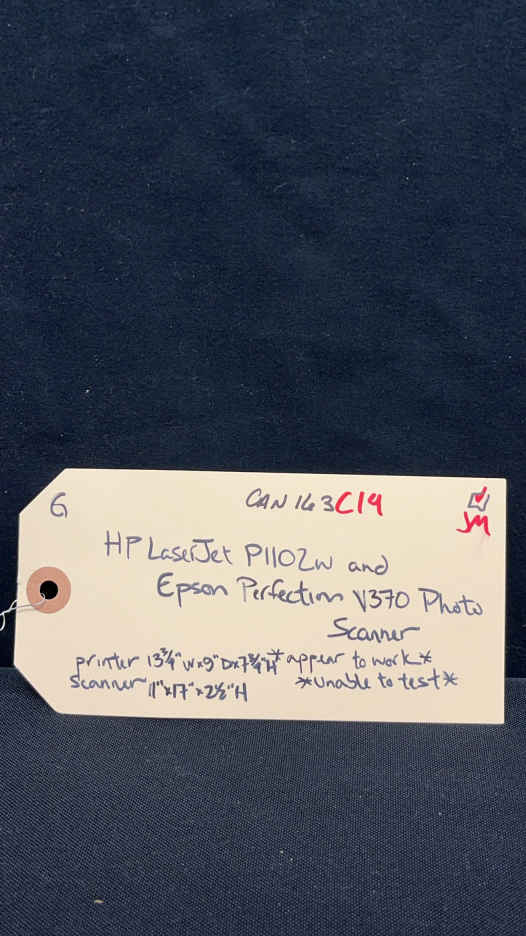 G CAN 163 C19
JM
HP LaserJet P1102w and
Epson Perfection V370 Photo
Scanner
printer 13¾"Wx9"Dx7¾"H *appear to work*
Scanner 11"x17"x2½"H *unable to test*